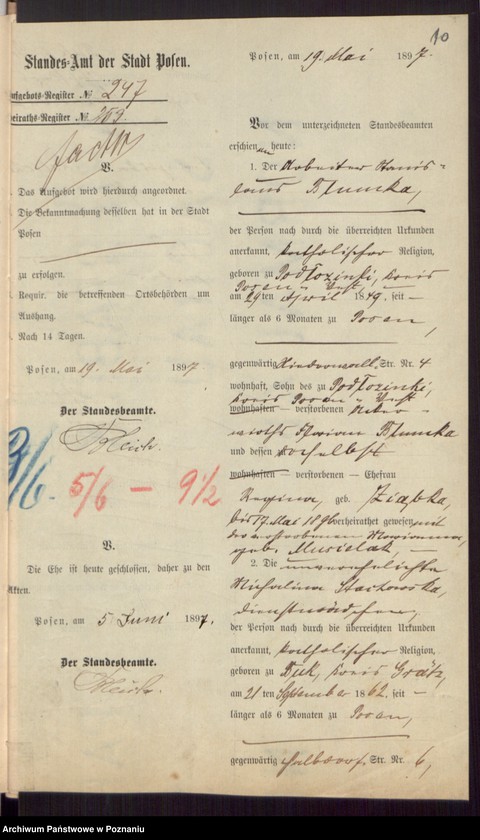 10
Standes-Amt der Stadt Posen.
ufgebots-Register № 247
eiraths-Register № 203.
facto
V.
Das Aufgebot wird hierdurch angeordnet.
Die Bekanntmachung desselben hat in der Stadt
Posen
zu erfolgen.
Requir. die betreffenden Ortsbehörden um
Aushang.
Nach 14 Tagen.
Posen, am 19. Mai 1897
Der Standesbeamte.
3/6.
5/6 — 9 1/2
V.
Die Ehe ist heute geschlossen, daher zu den
Akten.
Posen, am 5 Juni 1897.
Der Standesbeamte.
Posen, am 19. Mai 1897.
Vor dem unterzeichneten Standesbeamten
erschienen heute:
1. Der Arbeiter Stanis-
laus Blumka,
der Person nach durch die überreichten Urkunden
anerkannt, katholischer Religion,
geboren zu Podłozinki, Kreis
Posen - West,
am 29ten April 1849. seit —
länger als 6 Monaten zu Posen,
gegenwärtig Niederwall. Str. Nr. 4
wohnhaft, Sohn des zu Podłozinki,
Kreis Posen - West
wohnhaften — verstorbenen
wirths Florian Blumka
und dessen daselbst
wohnhaften — verstorbenen — Ehefrau
Regina, geb. Ziąbka,
bis 17. Mai 1896 verheirathet gewesen mit
der verstorbenen Marianna,
geb. Musielak, —
2. Die unverehelichte
Michalina Stachowska,
Dienstmädchen,
der Person nach durch die überreichten Urkunden
anerkannt, katholischer Religion,
geboren zu Buk, Kreis Grätz,
am 21ten September 1862. seit —
länger als 6 Monaten zu Posen,
gegenwärtig Halbdorf. Str. Nr. 6,
Archiwum Państwowe w Poznaniu